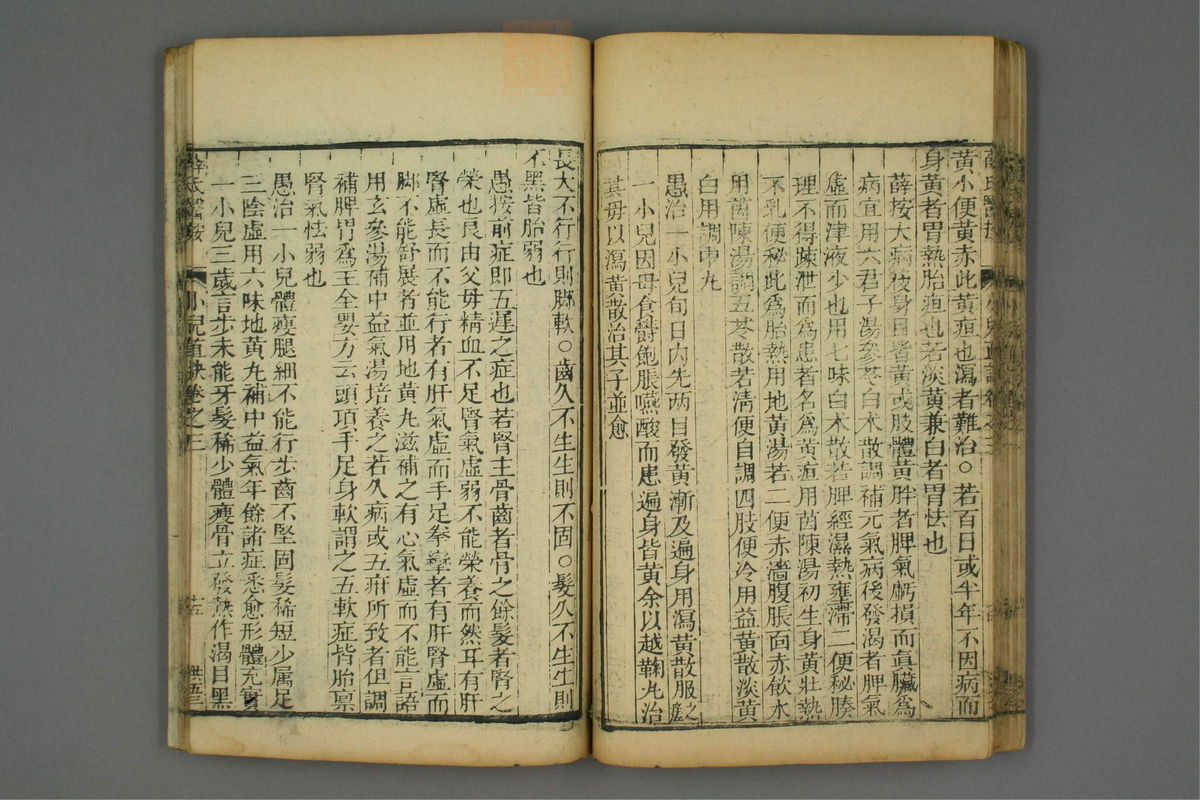 黃小便黃赤此黃疸也瀉者難治○若百日或半年不因病而
身黃者胃熱胎疸也若淡黃兼白者胃怯也
薛按大病後身目皆黃或肢體黃胖者脾氣虧損而眞臟爲
病宜用六君子湯參苓白朮散調補元氣病後發渴者脾氣
虛而津液少也用七味白朮散若脾經濕熱壅滯二便秘腠
理不得疎泄而爲患者名爲黃疸用茵陳湯初生身黃壯熱
不乳便秘此爲胎熱用地黃湯若二便赤濇腹脹面赤飲水
用茵陳湯調五苓散若淸便自調四肢便冷用益黃散淡黃
白用調中丸
愚治一小兒旬日內先两目發黃漸及遍身用瀉黃散服之瘥
一小兒因母食欝飽脹嚥酸而患遍身皆黃余以越鞠丸治
其母以瀉黃散治其子並愈
長大不行行則脚軟○齒久不生生則不固○髮久不生生則
不黑皆胎弱也
愚按前症即五遲之症也若腎主骨齒者骨之餘髮者腎之
榮也良由父母精血不足腎氣虛弱不能榮養而然耳有肝
腎虛長而不能行者有肝氣虛而手足拳攣者有肝腎虛而
脚不能舒展者並用地黃丸滋補之有心氣虛而不能言語
用玄參湯補中益氣湯培養之若久病或五疳所致者但調
補脾胃爲主全嬰方云頭項手足身軟謂之五軟症皆胎禀
腎氣怯弱也
愚治一小兒體瘦腿細不能行步齒不堅固髮稀短少属足
三陰虛用六味地黃丸補中益氣年餘諸症悉愈形體充實
一小兒三歲言步未能牙髮稀少體瘦骨立發熱作渴目黑
薛氏醫按
小兒直訣卷之三
十五
世五三